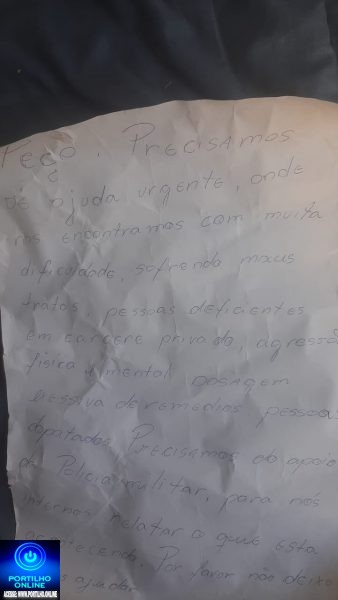 Peço. Precisamos
de ajuda urgente, onde
nos encontramos com muita
dificuldade, sofrendo maus
tratos, pessoas deficientes
em carcere privado, agressão
física, mental dosagem
de remedios pessoas
Precisamos do apoio
da Policia militar, para nós
internos relatar o que esta
acontecendo. Por favor não deixe
ajudar
PORTILHO
ONLINE
ACESSE: WWW.PORTILHO.ONLINE